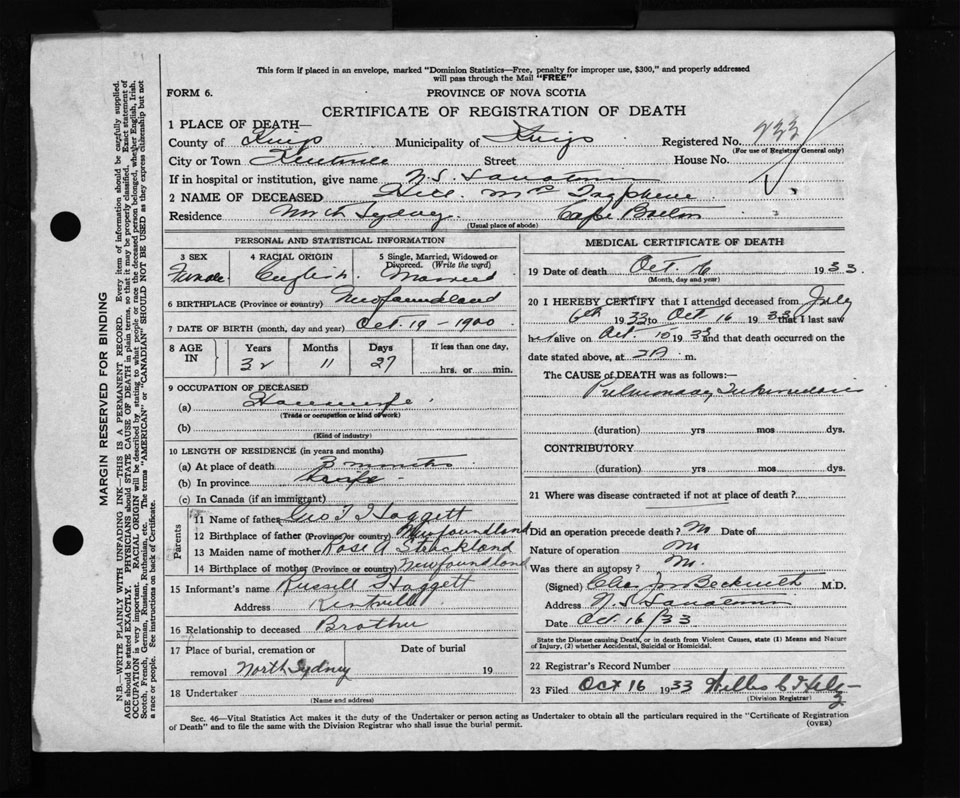 This form if placed in an envelope, marked "Dominion Statistics—Free, penalty for improper use, $300," and properly addressed
will pass through the Mail "FREE"
FORM 6. PROVINCE OF NOVA SCOTIA
CERTIFICATE OF REGISTRATION OF DEATH
1 PLACE OF DEATH—
County of Kings Municipality of Kings Registered No. 233
(For use of Registrar General only)
City or Town Kentville Street House No.
If in hospital or institution, give name N.S. Sanatorium
2 NAME OF DECEASED Mrs
Residence North Sydney Cape Breton
(Usual place of abode)
PERSONAL AND STATISTICAL INFORMATION
3 SEX 4 RACIAL ORIGIN 5 Single, Married, Widowed or Divorced. (Write the word)
Female English Married
6 BIRTHPLACE (Province or country) Newfoundland
7 DATE OF BIRTH (month, day and year) Oct. 19 - 1900
8 AGE IN Years Months Days If less than one day,
32 11 27 hrs. or min.
9 OCCUPATION OF DECEASED
(a) Housewife
(Trade or occupation or kind of work)
(b)
(Kind of industry)
10 LENGTH OF RESIDENCE (in years and months)
(a) At place of death 3 months
(b) In province
(c) In Canada (if an immigrant)
Parents
11 Name of father Geo T Haggett
12 Birthplace of father (Province or country) Newfoundland
13 Maiden name of mother Rose A Strickland
14 Birthplace of mother (Province or country) Newfoundland
15 Informant's name Russell Haggett
Address Kentville
16 Relationship to deceased Brother
17 Place of burial, cremation or removal North Sydney Date of burial 19
18 Undertaker
(Name and address)
MEDICAL CERTIFICATE OF DEATH
19 Date of death Oct 16 1933.
(Month, day and year)
20 I HEREBY CERTIFY that I attended deceased from July
6th 1933 to Oct 16 1933 that I last saw
her alive on Oct. 15 1933 and that death occurred on the
date stated above, at m.
The CAUSE OF DEATH was as follows:—
Pulmonary Tuberculosis
(duration) yrs mos dys.
CONTRIBUTORY
(duration) yrs mos dys.
21 Where was disease contracted if not at place of death?
Did an operation precede death? No Date of
Nature of operation No
Was there an autopsy? No.
(Signed) Beckwith M.D.
Address N.S. Sanatorium
Date Oct 16/33
State the Disease causing Death, or in death from Violent Causes, state (1) Means and Nature
of Injury, (2) whether Accidental, Suicidal or Homicidal.
22 Registrar's Record Number
23 Filed Oct 16 1933
(Division Registrar)
Sec. 46—Vital Statistics Act makes it the duty of the Undertaker or person acting as Undertaker to obtain all the particulars required in the "Certificate of Registration
of Death" and to file the same with the Division Registrar who shall issue the burial permit. (OVER)
MARGIN RESERVED FOR BINDING
N.B.—WRITE PLAINLY WITH UNFADING INK—THIS IS A PERMANENT RECORD. Every item of information should be carefully supplied.
AGE should be stated EXACTLY. PHYSICIANS should STATE CAUSE OF DEATH in plain terms, so that it may be properly classified. Exact statement of
OCCUPATION is very important. RACIAL ORIGIN will be described by stating to what people or race the deceased person belonged, whether English, Irish,
Scotch, French, German, Russian, Ruthenian, etc. The terms "AMERICAN" or "CANADIAN" SHOULD NOT BE USED as they express citizenship but not
a race or people. See instructions on back of Certificate.